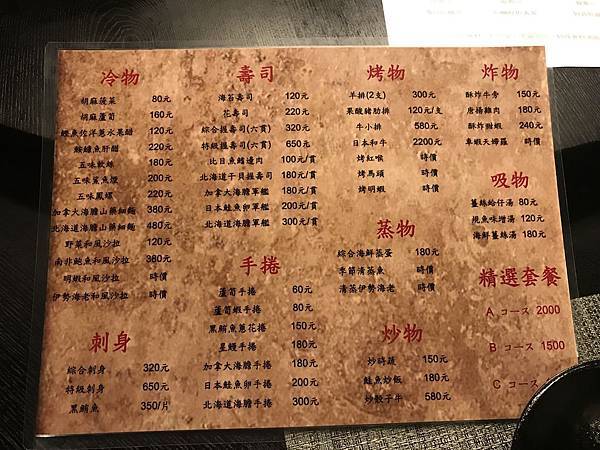 冷物
胡麻菠菜 80元
胡麻蘆筍 160元
鰹魚佐洋蔥水果醋 120元
鮟鱇魚肝醋 220元
五味軟絲 180元
五味鯊魚煙 200元
五味鳳螺 220元
加拿大海膽山藥細麵 380元
北海道海膽山藥細麵 480元
野菜和風沙拉 120元
南非鮑魚和風沙拉 360元
明蝦和風沙拉 時價
伊勢海老和風沙拉 時價
刺身
綜合刺身 320元
特級刺身 650元
黑鮪魚 350/片
壽司
海苔壽司 120元
花壽司 220元
綜合握壽司(六貫) 320元
特級握壽司(六貫) 650元
比目魚鰭邊肉 100元/貫
北海道干貝握壽司 180元
加拿大海膽軍艦 180元
日本鮭魚卵軍艦 200元/貫
北海道海膽軍艦 300元/貫
手捲
蘆筍手捲 60元
蘆筍蝦手捲 80元
黑鮪魚蔥花捲 150元
星鰻手捲 180元
加拿大海膽手捲 180元
日本鮭魚卵手捲 200元
北海道海膽手捲 300元
烤物
羊排(2支) 300元
果酸豬肋排 120元/支
牛小排 580元
日本和牛 2200元
烤紅喉 時價
烤馬頭 時價
烤明蝦 時價
蒸物
綜合海鮮蒸蛋 180元
季節清蒸魚 時價
清蒸伊勢海老 時價
炒物
炒時蔬 150元
鮭魚炒飯 180元
炒骰子牛 580元
炸物
酥炸牛旁 150元
唐揚雞肉 180元
酥炸 蝦 240元
車蝦天婦羅 時價
吸物
薑絲蛤仔湯 80元
魚味增湯 120元
海鮮薑絲湯 180元
精選套餐
A コース 2000
B コース 1500
C コース